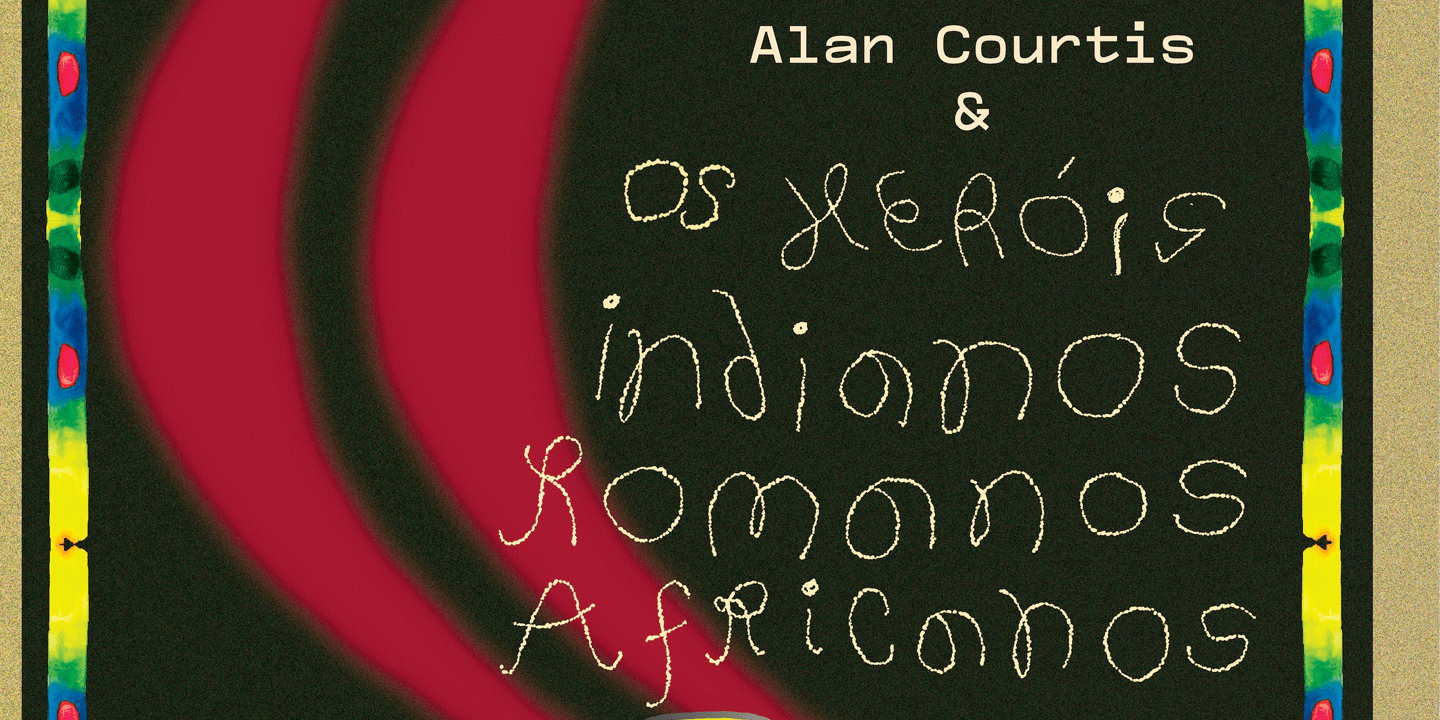 Alan Courtis
&
os HERÓis
indianos
Romanos
AfRicanos